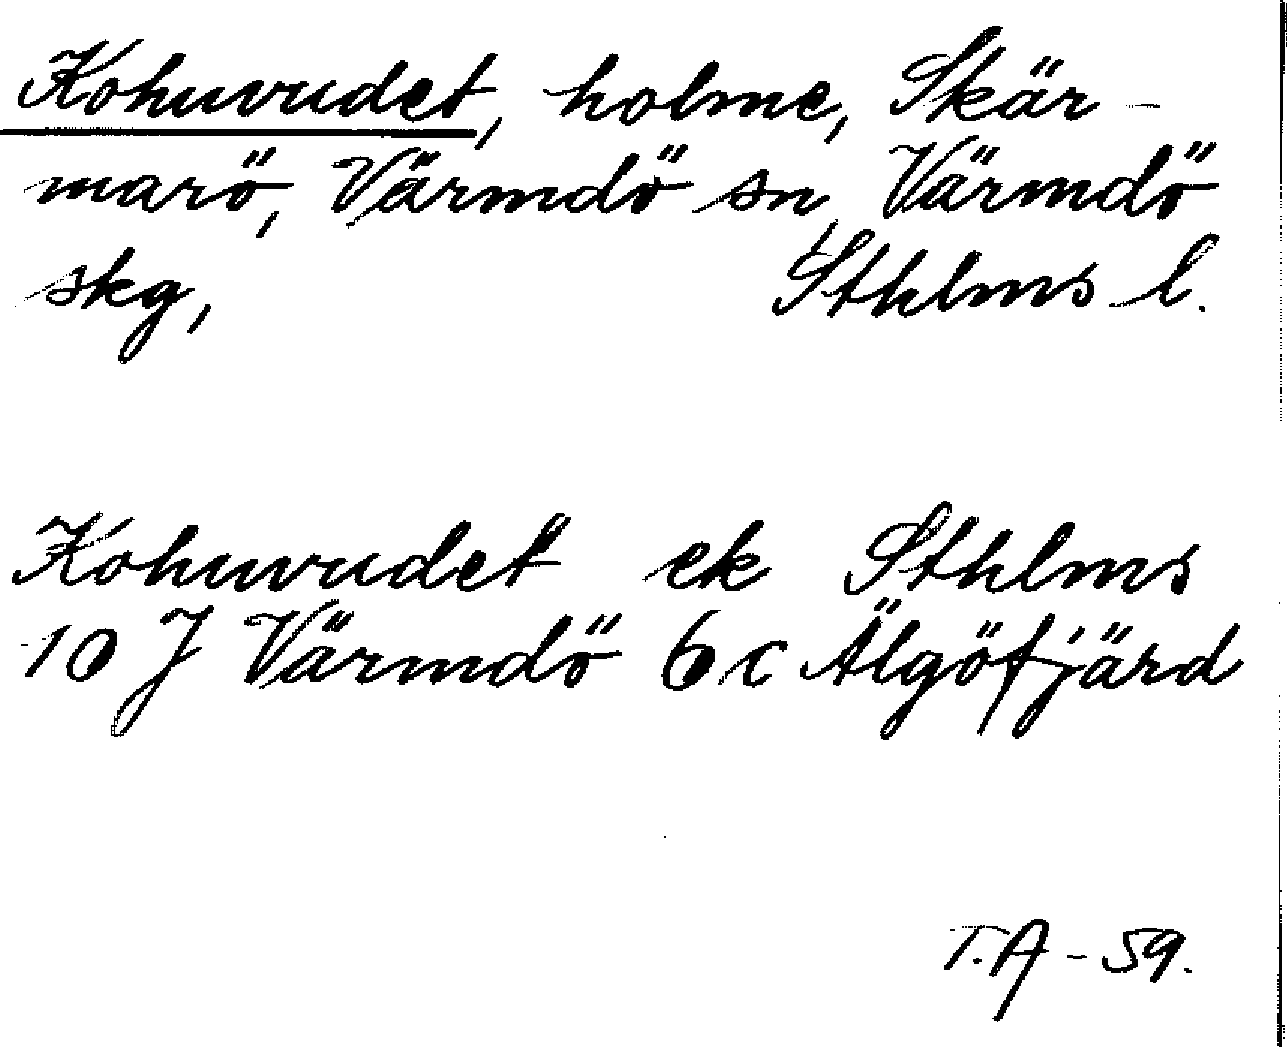 Kohuvudet, holme, Skär-
marö, Värmdö sn, Värmdö
skg, Sthlms l.
Kohuvudet ek Sthlms
10 J Värmdö 6 c Älgöfjärd
T.A - 59.